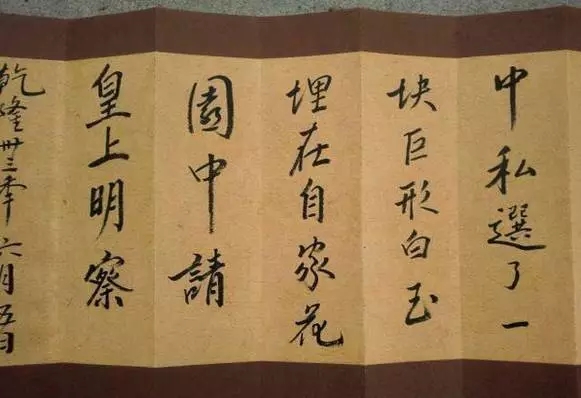 中私選了一
块巨形白玉
埋在自家花
園中請
皇上明察
乾隆卅三年六月五日